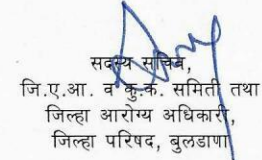 सदस्य सचिव,
जि.ए.आ. व कु.क. समिती तथा
जिल्हा आरोग्य अधिकारी,
जिल्हा परिषद, बुलडाणा